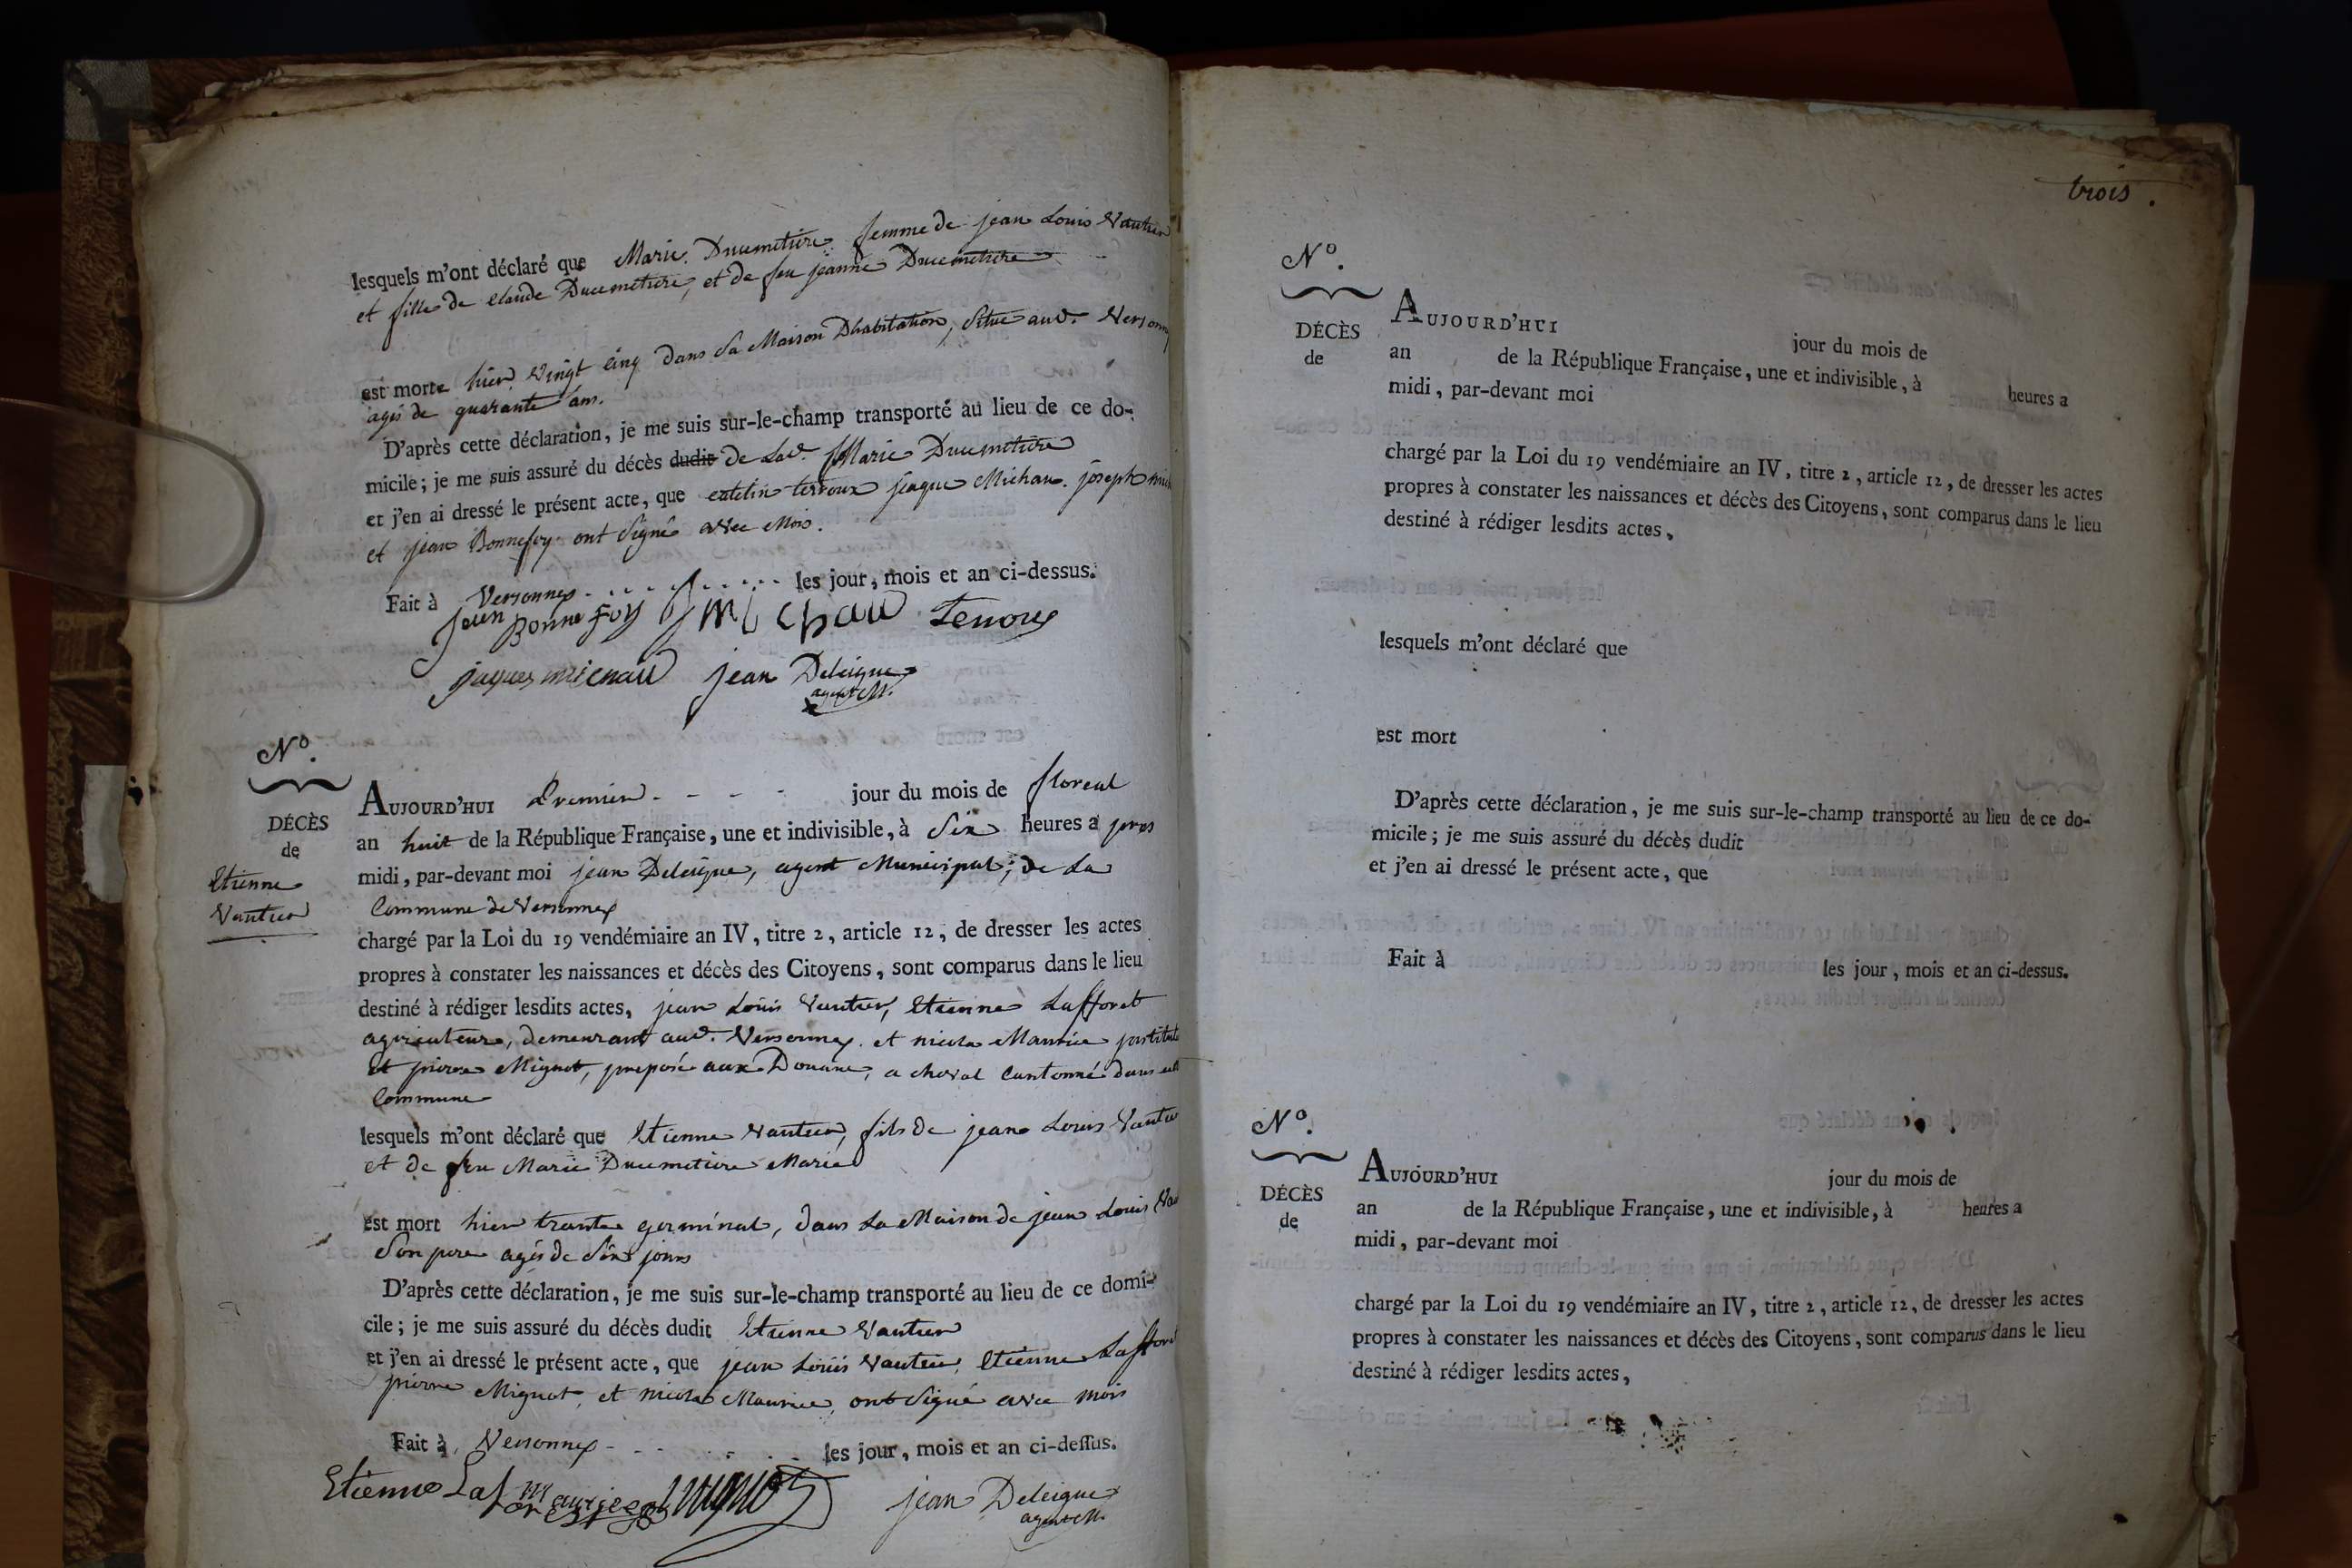 lesquels m'ont déclaré que Marie Ducimetiere femme de jean Louis Vautier
et fille de Claude Ducimetiere, et de feu jeanne Ducimetiere
est morte hier vingt cinq dans sa Maison Dhabitation, situé aud. Versonnex
agés de quarante ans.
D'après cette déclaration, je me suis sur-le-champ transporté au lieu de ce do-
micile; je me suis assuré du décès dudit de Lad. Marie Ducimetiere
et j'en ai dressé le présent acte, que terroux jaque Michau. joseph
et jean Bonnefoy ont signé avec Mois.
Fait à Versonnex les jour, mois et an ci-dessus.
jean Bonnefoy j michau Terroux
jaques michau jean Deleigue
agent M.
No.
DÉCÈS
de
Etienne
Vautier
AUJOURD'HUI Premier - - - - jour du mois de floreal
an huit de la République Française, une et indivisible, à Six heures a pres
midi, par-devant moi jean Deleigue, agent Municipal, de La
Commune de Versonnex
chargé par la Loi du 19 vendémiaire an IV, titre 2, article 12, de dresser les actes
propres à constater les naissances et décès des Citoyens, sont comparus dans le lieu
destiné à rédiger lesdits actes, jean Louis Vautier, Etienne Lafforet
agriculteurs, demeurant aud. Versonnex. et nicola Maurice
et pierre Mignot, preposé aux Douane, a cheval Cantonné dans
Commune
lesquels m'ont déclaré que Etienne Vautier, fils de jean Louis Vautier
et de feu Marie Ducimetiere Marié
est mort hier trante germinal, dans La Maison de jean Louis
Son pere agés de Six jours
D'après cette déclaration, je me suis sur-le-champ transporté au lieu de ce domi-
cile; je me suis assuré du décès dudit Etienne Vautier
et j'en ai dressé le présent acte, que jean Louis Vautier, Etienne Lafforet
pierre Mignot, et nicola Maurice, ont signé avec mois
Fait à Versonnex - - - les jour, mois et an ci-dessus.
Etienne Laforet maurice mignot jean Deleigue
agent M.
trois.
No.
DÉCÈS
de
AUJOURD'HUI jour du mois de
an de la République Française, une et indivisible, à heures a
midi, par-devant moi
chargé par la Loi du 19 vendémiaire an IV, titre 2, article 12, de dresser les actes
propres à constater les naissances et décès des Citoyens, sont comparus dans le lieu
destiné à rédiger lesdits actes,
lesquels m'ont déclaré que
est mort
D'après cette déclaration, je me suis sur-le-champ transporté au lieu de ce do-
micile; je me suis assuré du décès dudit
et j'en ai dressé le présent acte, que
Fait à les jour, mois et an ci-dessus.
No.
DÉCÈS
de
AUJOURD'HUI jour du mois de
an de la République Française, une et indivisible, à heures a
midi, par-devant moi
chargé par la Loi du 19 vendémiaire an IV, titre 2, article 12, de dresser les actes
propres à constater les naissances et décès des Citoyens, sont comparus dans le lieu
destiné à rédiger lesdits actes,